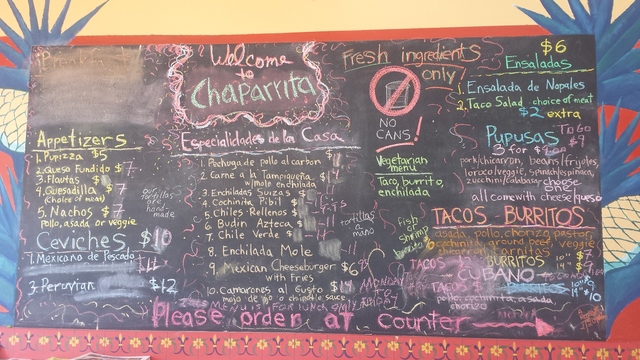 Breakfast
Welcome
to
Chaparrita
Fresh ingredients
only!
NO
CANS!
Vegetarian
menu
Taco, burrito,
enchilada
$6
Ensaladas
1. Ensalada de Nopales
2. Taco Salad choice of meat
$2 extra
Pupusas
3 for $9
pork/chicarron, beans/frijoles,
loroco/veggie, spinach/espinaca,
zucchini/calabaza cheese
all come with cheese/queso
Appetizers
1. Pupizza $5
2. Queso Fundido $7
3. Flautas $
4. Quesadilla $7
(choice of meat)
5. Nachos $7
Pollo, asada or veggie
our
tortillas
are
hand-
made
Ceviches $10
1. Mexicano de Pescado
3. Peruvian $12
Especialidades de la Casa
1. Pechuga de pollo al carbon
2. Carne a la Tampiqueña
w/mole enchilada
3. Enchiladas Suizas
4. Cochinita Pibil
5. Chiles Rellenos
6. Budin Azteca
7. Chile Verde
8. Enchilada Mole
9. Mexican Cheeseburger $6
with fries
10. Camarones al Gusto $14
mojo de ajo o chipotle sauce
tortillas
a
mano
fish
or
shrimp
TACOS BURRITOS
asada, pollo, chorizo, pastor,
cochinita, ground beef, veggie
BURRITOS
TACOS
CUBANO
TACOS
BURRITOS
$10
pollo, cochinita, asada
chorizo
Please order at counter